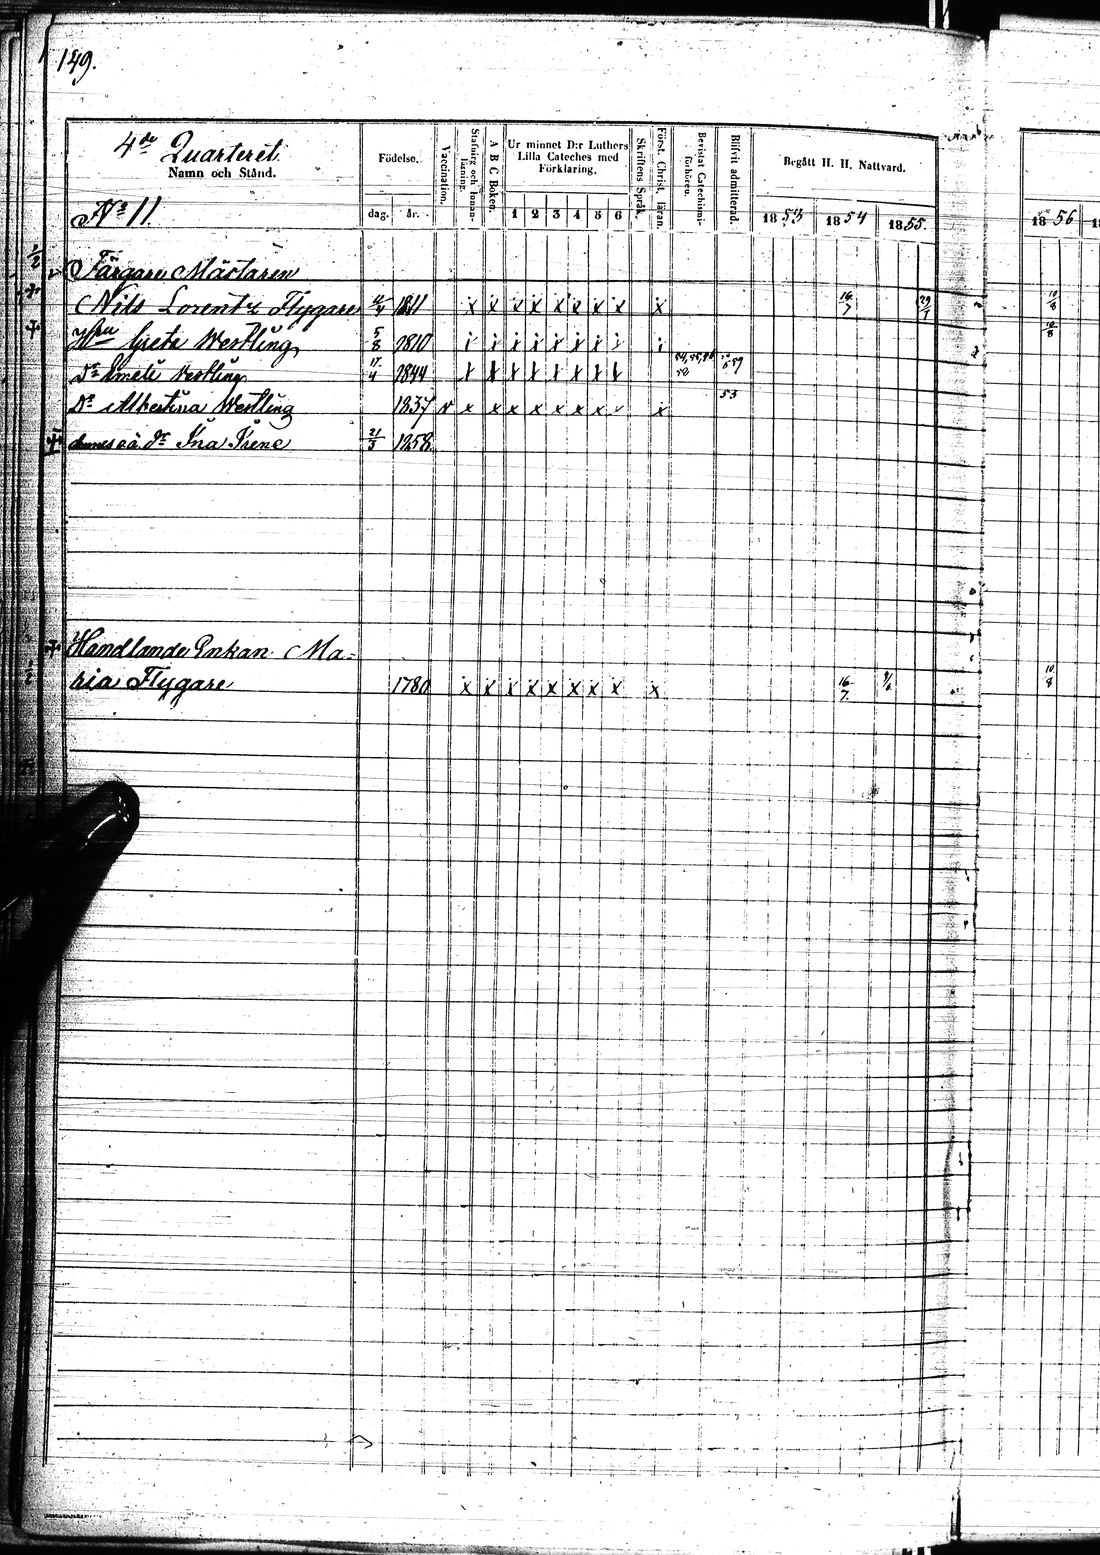 149.
4de Quarteret.
Namn och Stånd.
No 11.
Födelse.
dag. år.
Vaccination.
Stafning och Innanläsning.
A B C Boken.
Ur minnet D:r Luthers
Lilla Cateches med
Förklaring.
1 2 3 4 5 6
Skriftens Språk.
Först. Christ. läran.
Bevistat Catechismi-
förhören.
Blifvit admitterad.
Begått H. H. Nattvard.
1853 1854 1855. 1856
Färgare Mästaren
Nils Lorentz Flygare 1811 x x x x x x x x x 16/7 29/1 10/8
Hu Greta Westling 5/8 1810 10/8
Dr Westling 17/4 1844
Dr Albertina Westling 1837 v x x x x x x x x 53
dennes o ä dr Ina Irene 21/3 1858.
Handlande Enkan Ma-
ria Flygare 1780 x x x x x x x x x 16/7. 10/8